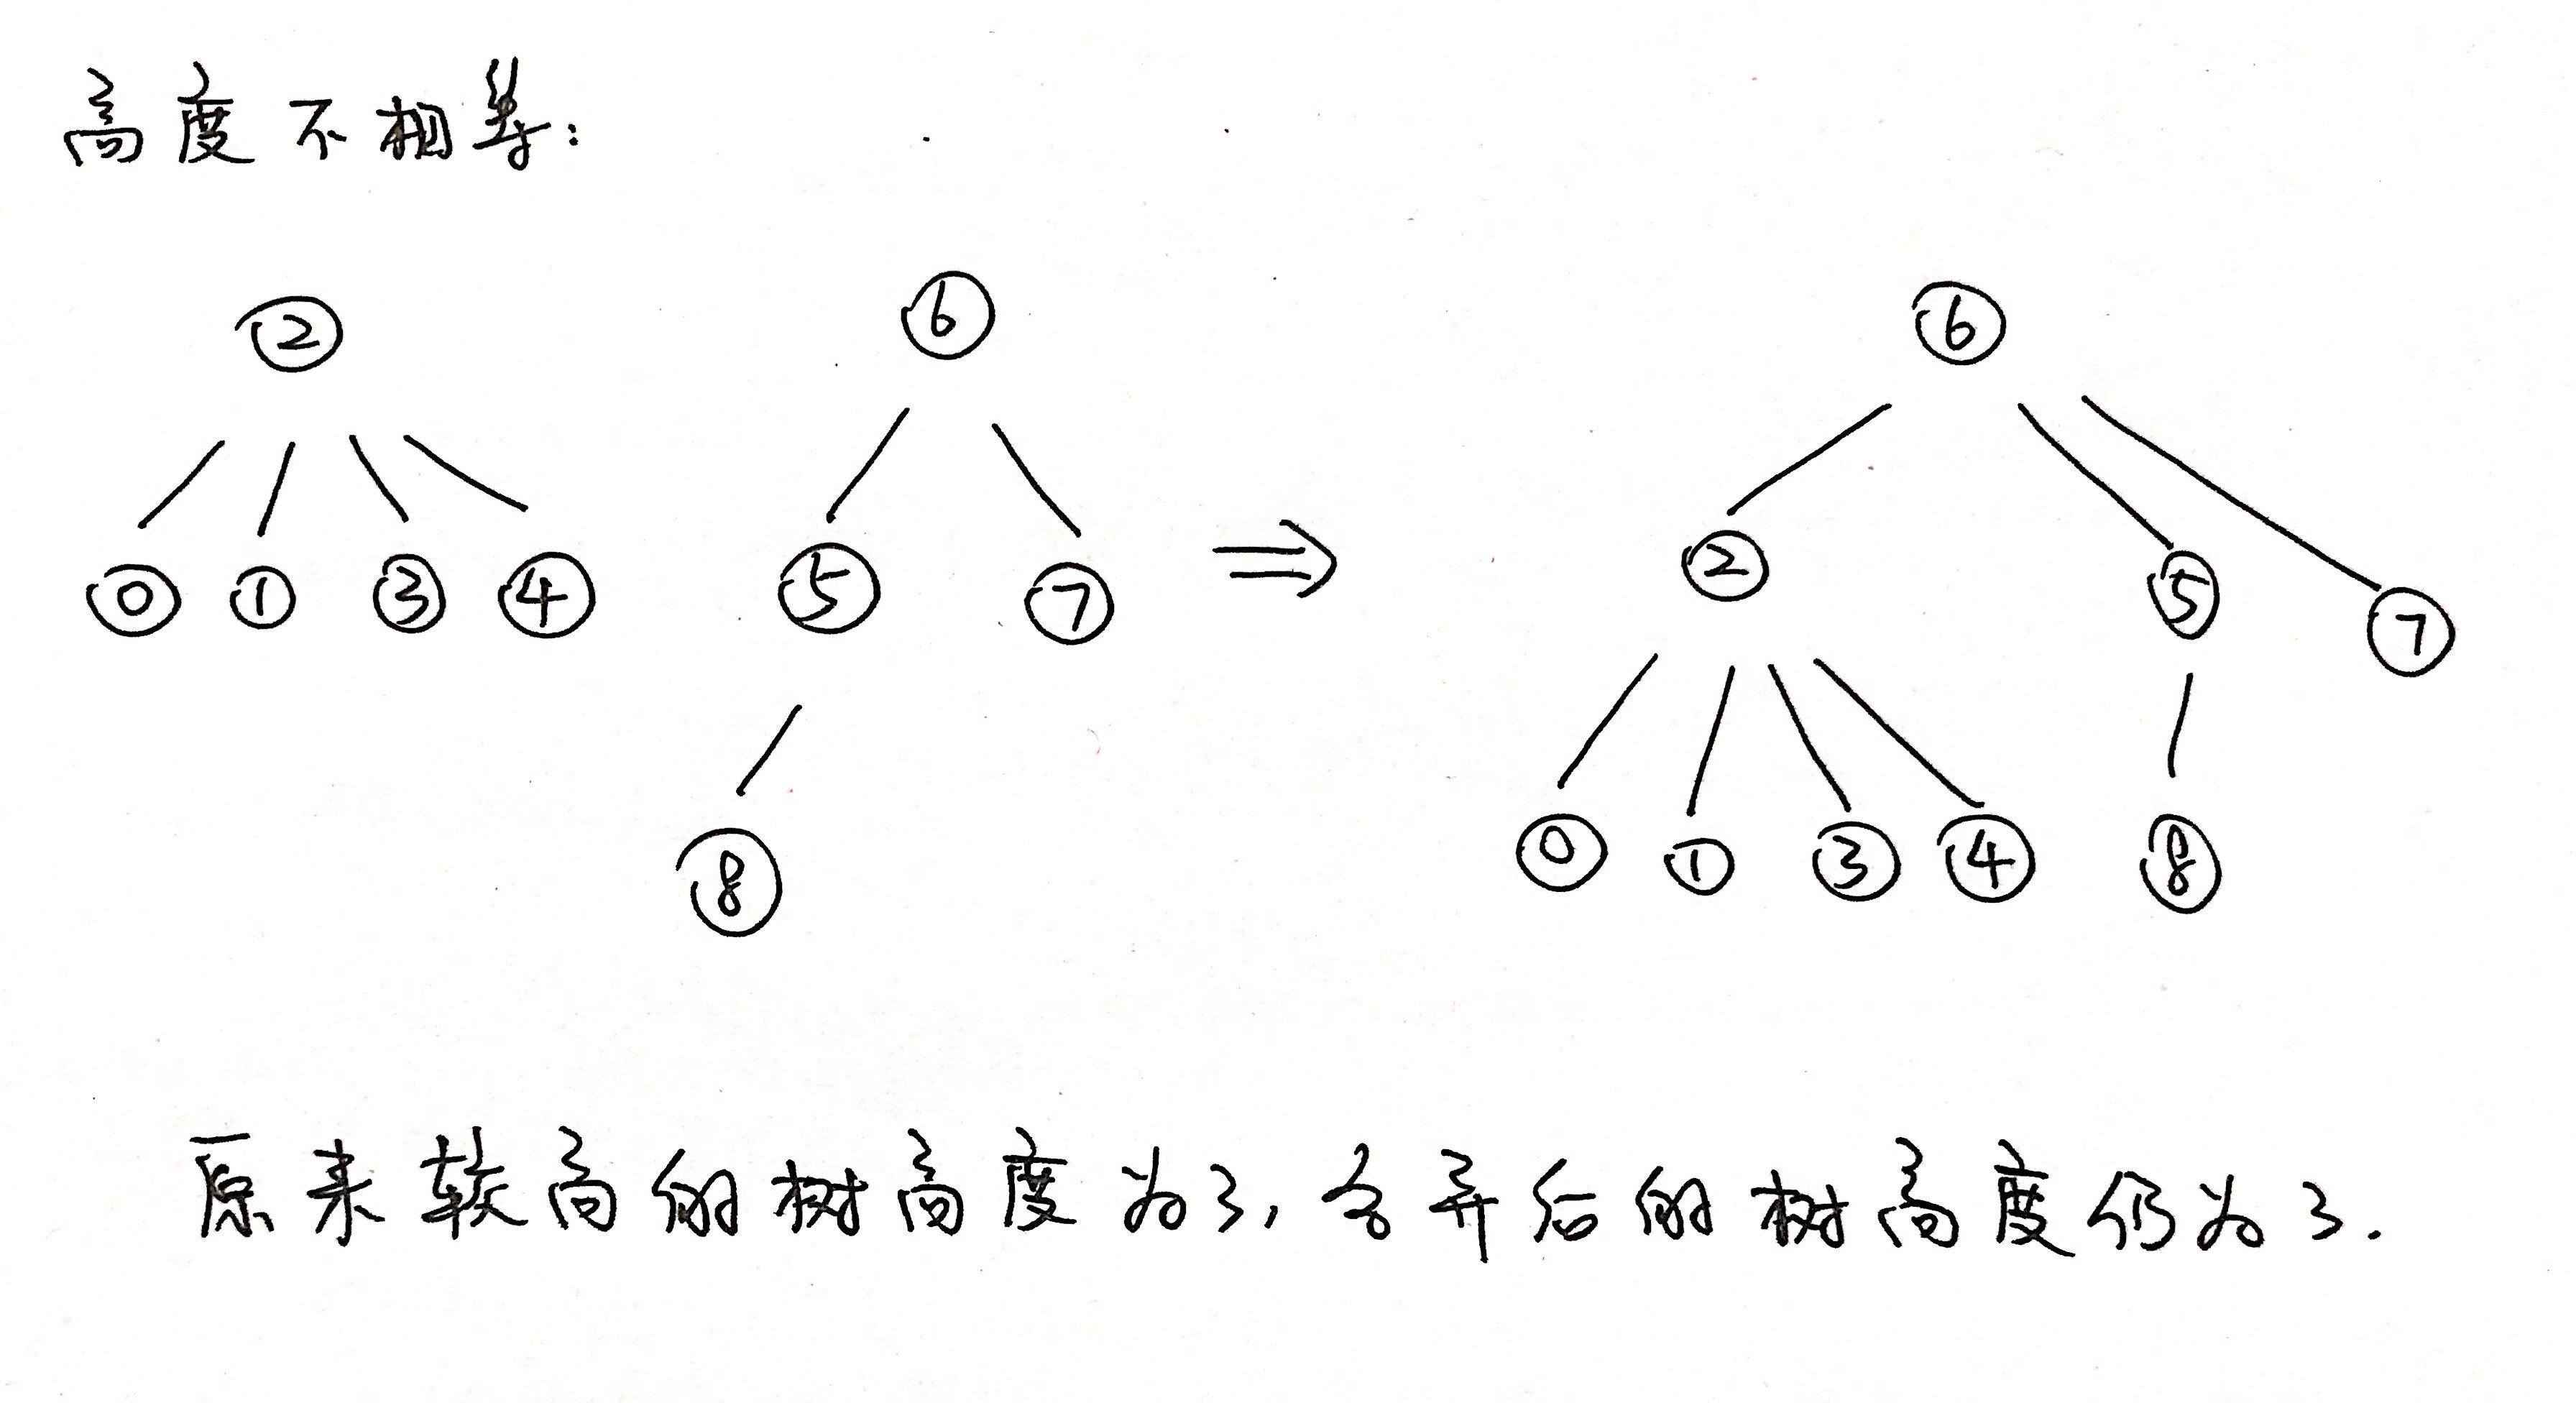 高度不相等:
2 6 6
0 1 3 4 5 7 ⇒ 2 5 7
8 0 1 3 4 8
原来较高的树高度为3,合并后的树高度仍为3.